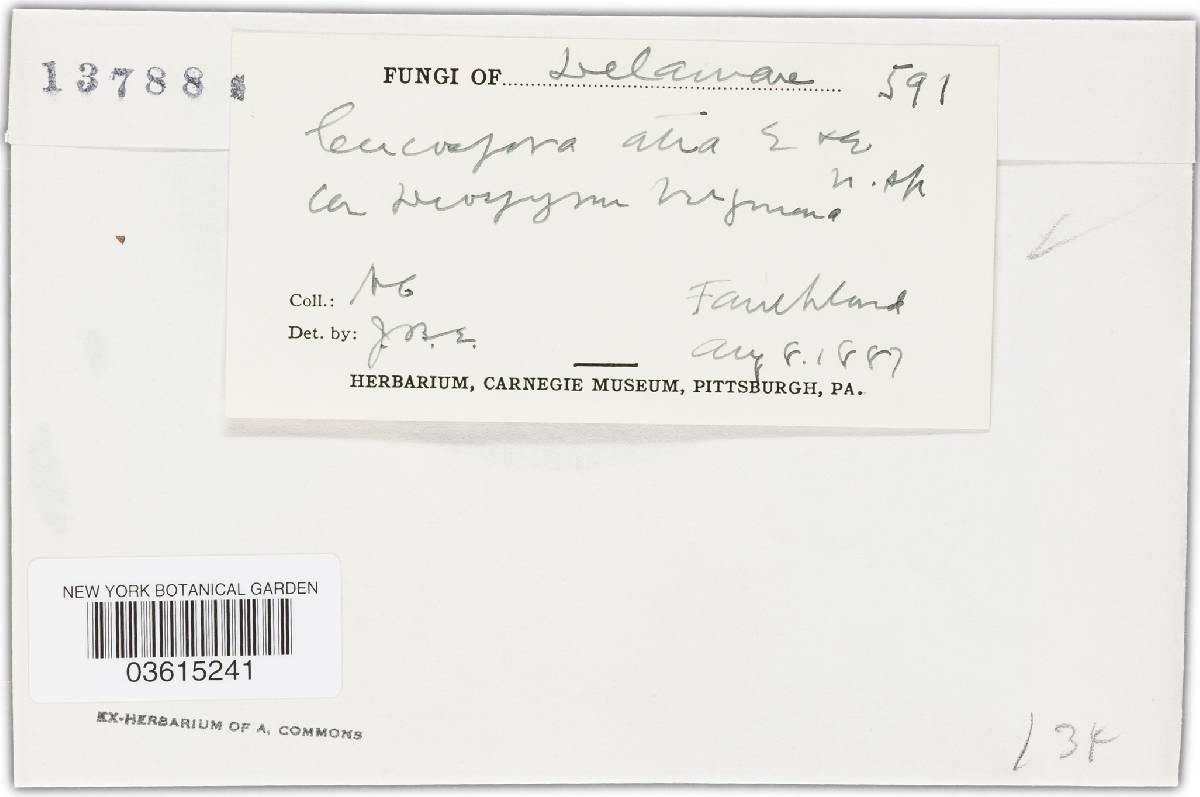 13788
FUNGI OF Delaware 591
Cercospora atra E & E
n. sp
on Diospyros Virginiana
Coll.: AC
Det. by: J.B.E.
Faulkland
Aug 8. 1887
HERBARIUM, CARNEGIE MUSEUM, PITTSBURGH, PA.
NEW YORK BOTANICAL GARDEN
03615241
EX-HERBARIUM OF A. COMMONS
134